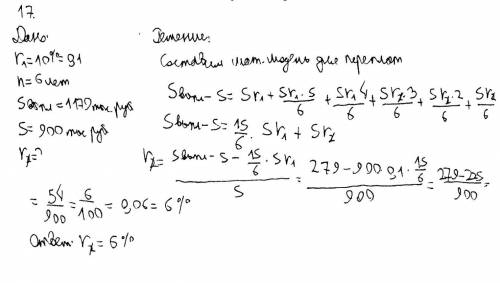 17.
Дано:
r₁=10%=0,1
n=6 лет
Sвып=1179 тыс. руб
S=900 тыс руб
rₓ=?
Решение:
Составим мат. модель для переплат
Sвып-S= Sr₁ + Sr₁·5/6 + Sr₁·4/6 + Srₓ·3/6 + Srₓ·2/6 + Srₓ/6
Sвып-S= 15/6 · Sr₁ + Srₓ
rₓ= (Sвып-S-15/6·Sr₁)/S = (279-900·0,1·15/6)/900 = (279-225)/900 =
= 54/900 = 6/100 = 0,06 = 6%
Ответ: rₓ = 6%